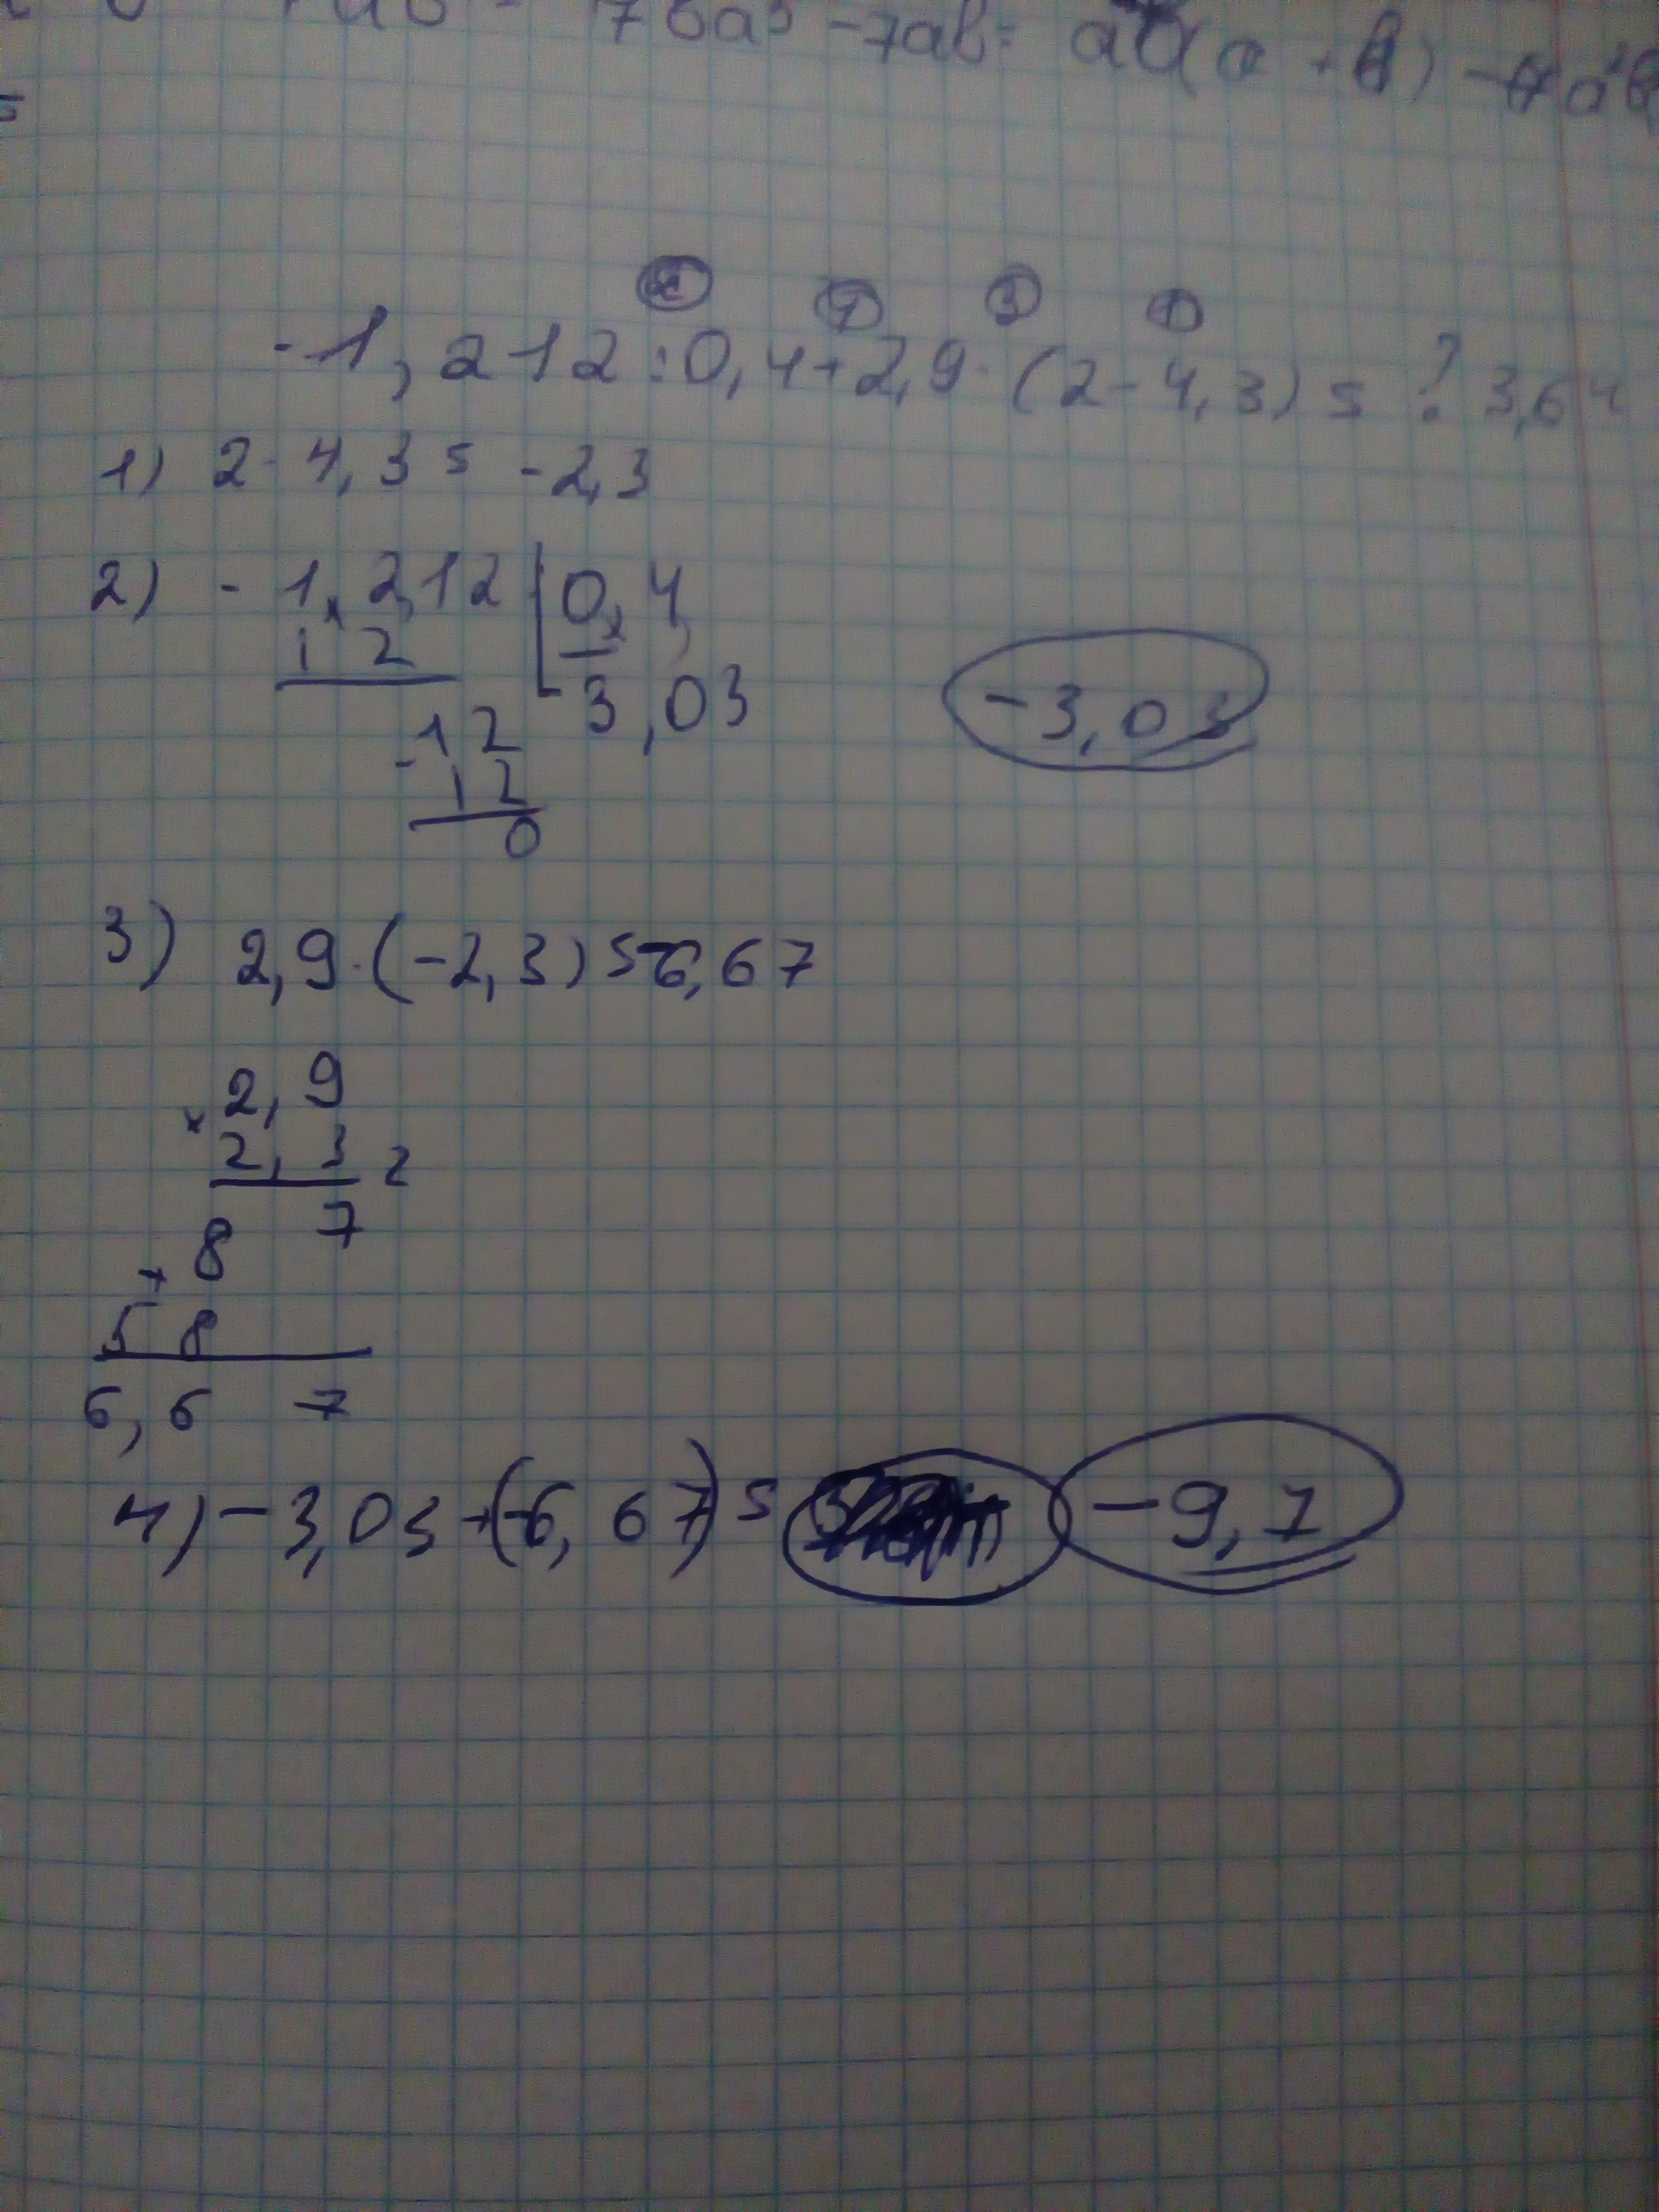 -7ab =
② ④ ③ ①
-1,212:0,4+2,9·(2-4,3)= ? 3,64
1) 2-4,3= -2,3
2) -1,212 0,4
12 3,03
-12
12
0
-3,03
3) 2,9·(-2,3)=-6,67
× 2,9
2,3 =
8 7
+
5 8
6,6 7
4) -3,03+(-6,67)= -9,7